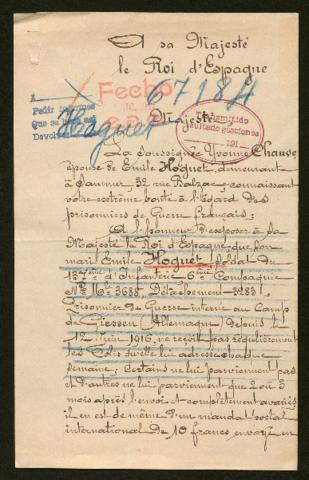 A sa Majesté
le Roi d'Espagne
67184
Fecho
A
Pedir informes
Que se
Devol
Hoguet
Majesté
Transmitido
Resultado gestiones
191
La soussignée Yvonne Chauve,
épouse de Emile Hoguet, demeurant
à Saumur, 32 rue Balzac, connaissant
votre extrême bonté à l'égard des
prisonniers de Guerre français;
A l'honneur d'exposer à sa
Majesté le Roi d'Espagne que son
mari Emile Hoguet, soldat du
ème d'Infanterie 6ème Compagnie
Mle 3688, Détachement 3283
Prisonnier de Guerre interné au Camp
de Giessen (Allemagne) depuis le
12 juin 1916, ne reçoit pas régulièrement
les Colis qu'elle lui adresse chaque
semaine; certains ne lui parviennent pas
et d'autres ne lui parviennent que 2 ou 3
mois après l'envoi et complètement avariés;
il en est de même d'un mandat postal
international de 10 francs envoyé en